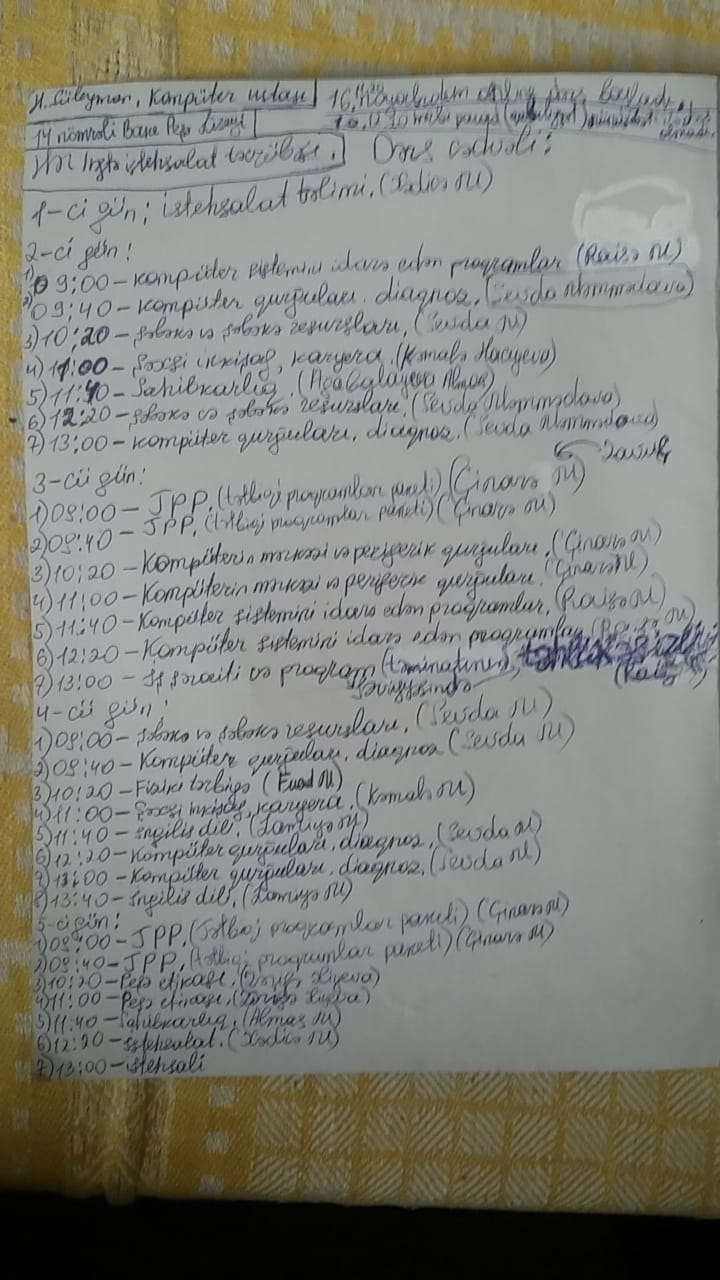 H. Süleyman, Kompüter ustası
14 nömrəli Bakı Peşə Liseyi
Hər həftə istehsalat təcrübəsi. Dərs cədvəli:
1-ci gün; istehsalat təlimi, (Xədicə M)
2-ci gün:
1) 09:00 - kompüter sistemini idarə edən programlar (Raisə M)
2) 09:40 - kompüter qurğuları, diagnoz, (Sevda Məmmədova)
3) 10:20 - şəbəkə və şəbəkə resursları, (Sevda M)
4) 11:00 - Şəxsi inkişaf, karyera, (Kəmalə Hacıyeva)
5) 11:40 - Sahibkarlıq, (Ağabalayeva Almaz)
6) 12:20 - şəbəkə və şəbəkə resursları, (Sevda Məmmədova)
7) 13:00 - kompüter qurğuları, diagnoz, (Sevda Məmmədova)
3-cü gün:
1) 09:00 - TPP, (tətbiqi programlar paketi) (Çinarə M)
2) 09:40 - TPP, (tətbiqi programlar paketi) (Çinarə M)
3) 10:20 - Kompüterin mərkəzi və periferik qurğuları, (Çinarə M)
4) 11:00 - Kompüterin mərkəzi və periferik qurğuları, (Çinarə M)
5) 11:40 - Kompüter sistemini idarə edən programlar, (Raisə M)
6) 12:20 - Kompüter sistemini idarə edən programlar (Raisə M)
7) 13:00 - İş şəraiti və program (təminatının), təhlükəsizliyi
(Raisə M)
4-cü gün:
1) 09:00 - şəbəkə və şəbəkə resursları, (Sevda M)
2) 09:40 - Kompüter qurğuları, diagnoz (Sevda M)
3) 10:20 - Fiziki tərbiyə (Fuad M)
4) 11:00 - Şəxsi inkişaf, karyera, (Kəmalə M)
5) 11:40 - İngilis dili, (Lamiyə M)
6) 12:20 - Kompüter qurğuları, diagnoz, (Sevda M)
7) 13:00 - Kompüter qurğuları, diagnoz, (Sevda M)
8) 13:40 - İngilis dili, (Lamiyə M)
5-ci gün:
1) 09:00 - TPP, (Tətbiqi programlar paketi) (Çinarə M)
2) 09:40 - TPP, (tətbiqi programlar paketi) (Çinarə M)
3) 10:20 - Peşə etikası,
4) 11:00 - Peşə etikası,
5) 11:40 - Sahibkarlıq, (Almaz M)
6) 12:20 - İstehsalat, (Xədicə M)
7) 13:00 - istehsali